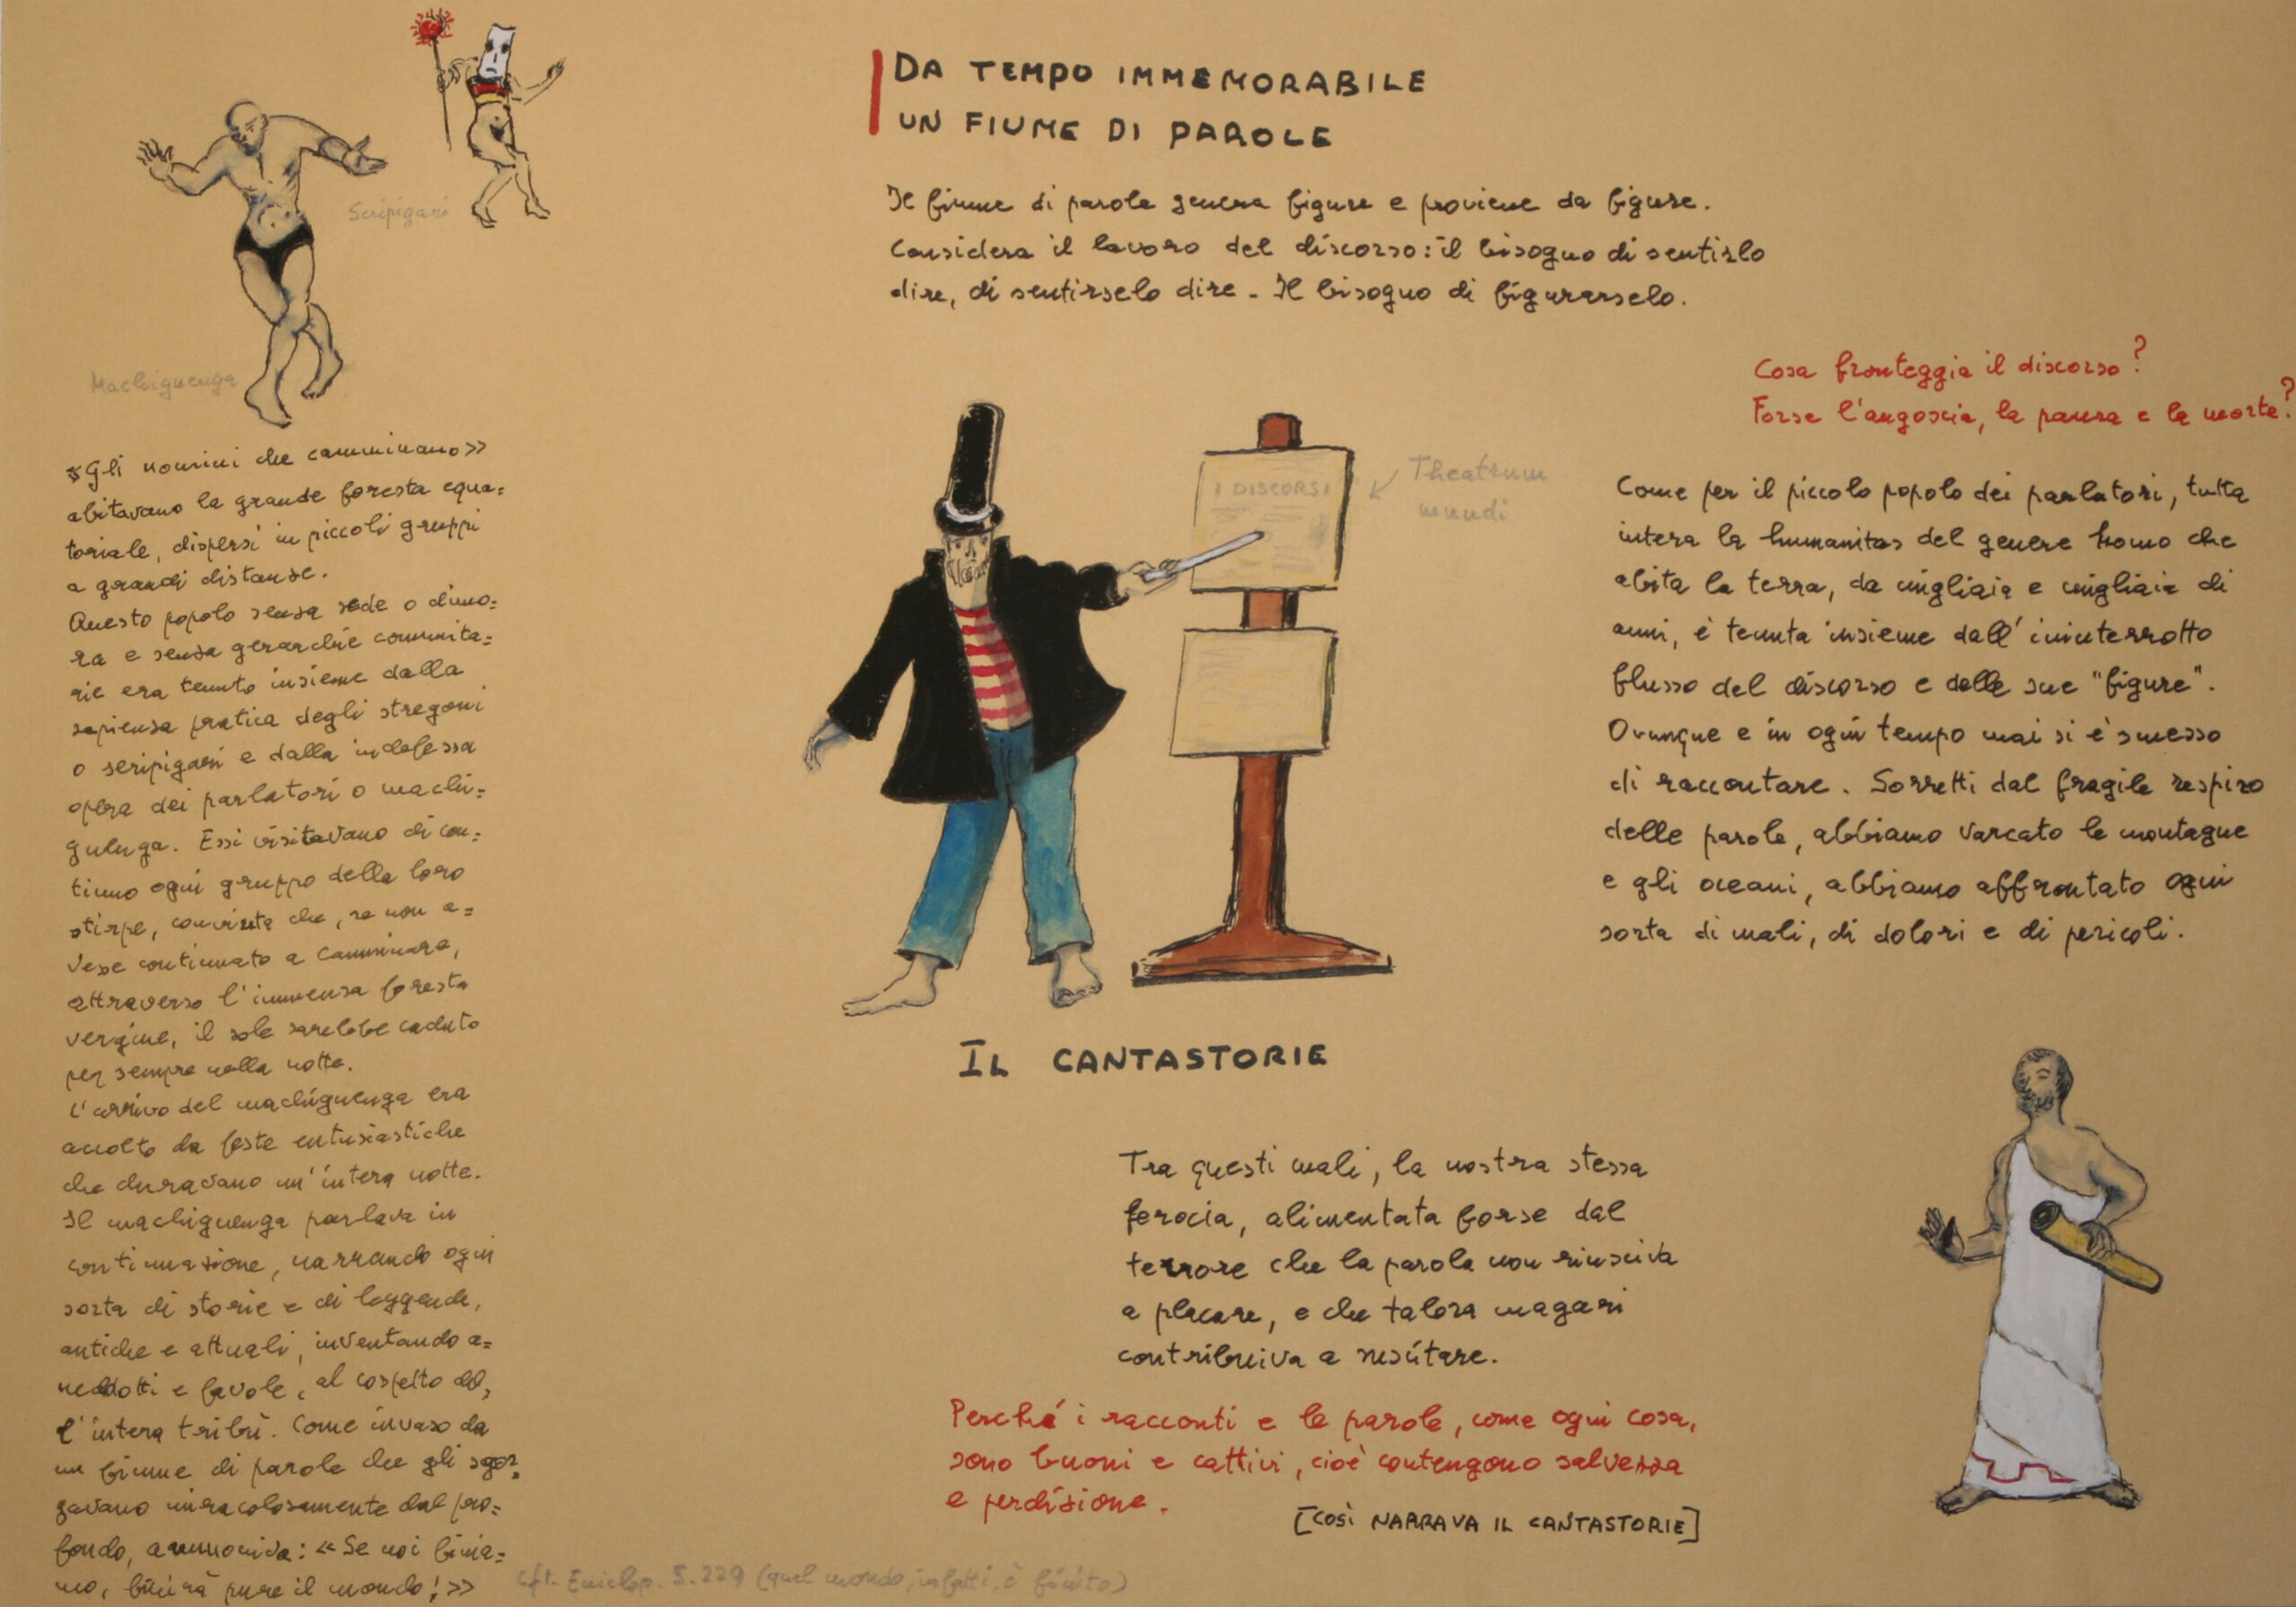 DA TEMPO IMMEMORABILE
UN FIUME DI PAROLE
Il fiume di parole genera figure e proviene da figure.
Considera il lavoro del discorso: il bisogno di sentirlo
dire, di sentirselo dire. Il bisogno di figurarselo.
Seripigari
Machiguenga
«Gli uomini che camminano»
abitavano la grande foresta equa=
toriale, dispersi in piccoli gruppi
a grandi distanze.
Questo popolo senza sede o dimo=
ra e senza gerarchie comunita=
rie era tenuto insieme dalla
sapienza pratica degli stregoni
o seripigari e dalla indefessa
opera dei parlatori o machi=
guenga. Essi visitavano di con=
tinuo ogni gruppo della loro
stirpe, convinta che, se non a=
vesse continuato a camminare,
attraverso l'immensa foresta
vergine, il sole sarebbe caduto
per sempre nella notte.
L'arrivo del machiguenga era
accolto da feste entusiastiche
che duravano un'intera notte.
Il machiguenga parlava in
continuazione, narrando ogni
sorta di storie e di leggende,
antiche e attuali, inventando a=
neddoti e favole, al cospetto del=
l'intera tribù. Come invaso da
un fiume di parole che gli sgor=
gavano miracolosamente dal pro=
fondo, ammoniva: «Se noi finia=
mo, finirà pure il mondo!»
cfr. Enciclop. S. 229 (quel mondo, infatti, è finito)
I DISCORSI
Theatrum
mundi
IL CANTASTORIE
Cosa fronteggia il discorso?
Forse l'angoscia, la paura e la morte?
Come per il piccolo popolo dei parlatori, tutta
intera la humanitas del genere homo che
abita la terra, da migliaia e migliaia di
anni, è tenuta insieme dall'ininterrotto
flusso del discorso e delle sue "figure".
Ovunque e in ogni tempo mai si è smesso
di raccontare. Sorretti dal fragile respiro
delle parole, abbiamo varcato le montagne
e gli oceani, abbiamo affrontato ogni
sorta di mali, di dolori e di pericoli.
Tra questi mali, la nostra stessa
ferocia, alimentata forse dal
terrore che la parola non riusciva
a placare, e che talora magari
contribuiva a suscitare.
Perché i racconti e le parole, come ogni cosa,
sono buoni e cattivi, cioè contengono salvezza
e perdizione.
[COSÌ NARRAVA IL CANTASTORIE]